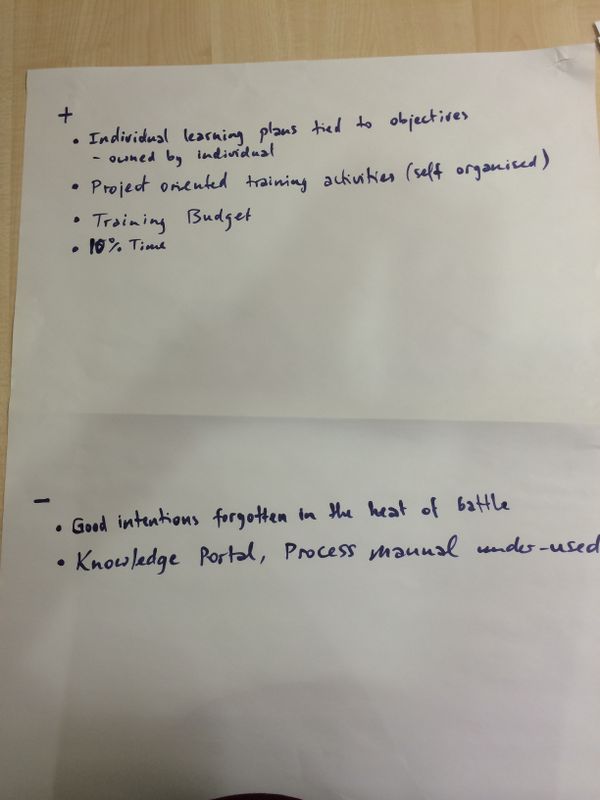 +
• Individual learning plans tied to objectives
- owned by individual
• Project oriented training activities (self organised)
• Training Budget
• 10% Time
-
• Good intentions forgotten in the heat of battle
• Knowledge Portal, Process manual under-used